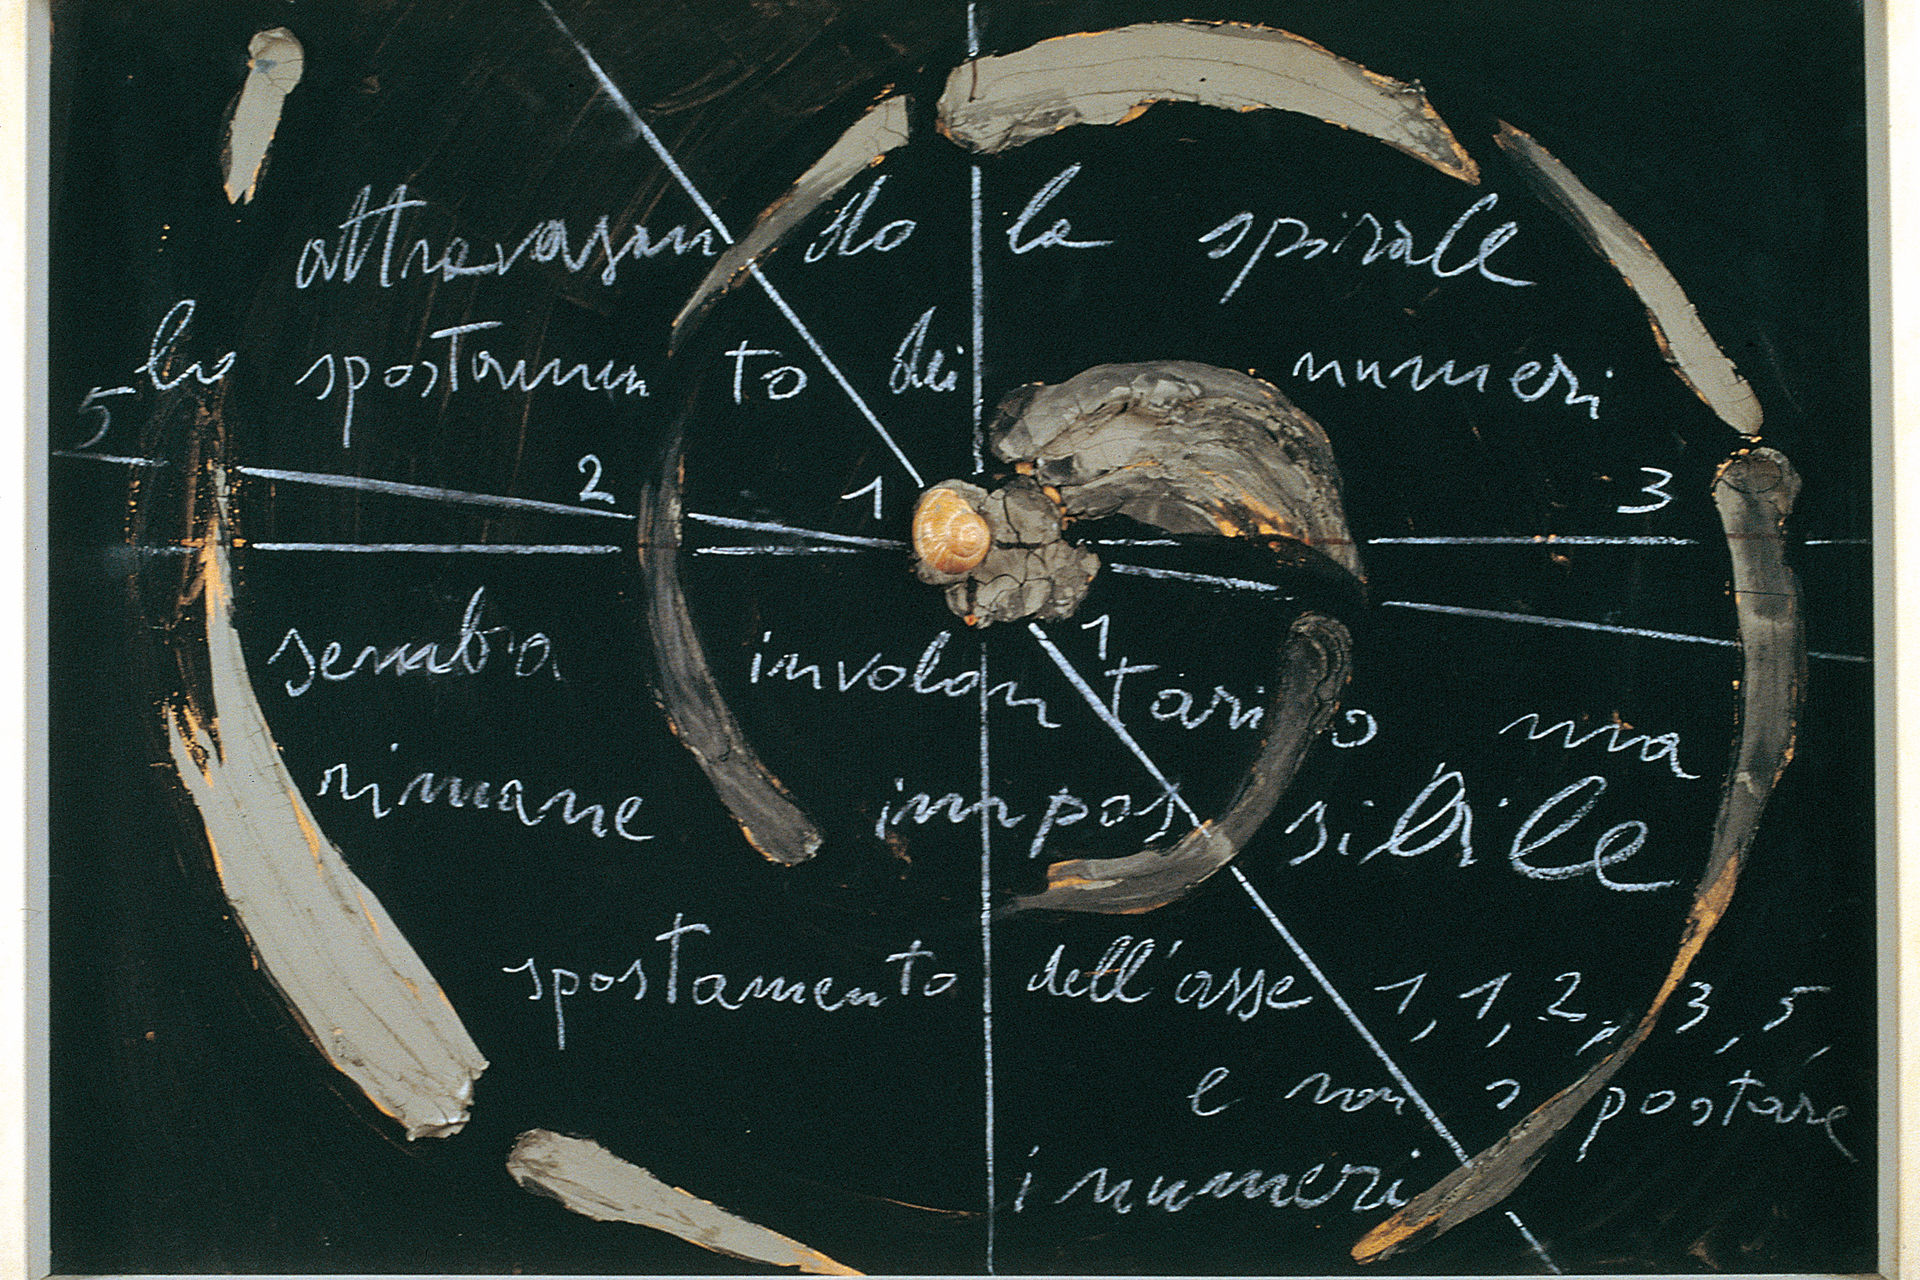 attraversan do la spirale
lo spostamen to dei numeri
5
2 1 3
sembra involon tari o ma
1
rimane impos sibile
spostamento dell'asse 1, 1, 2, 3, 5,
e non spostare
i numeri